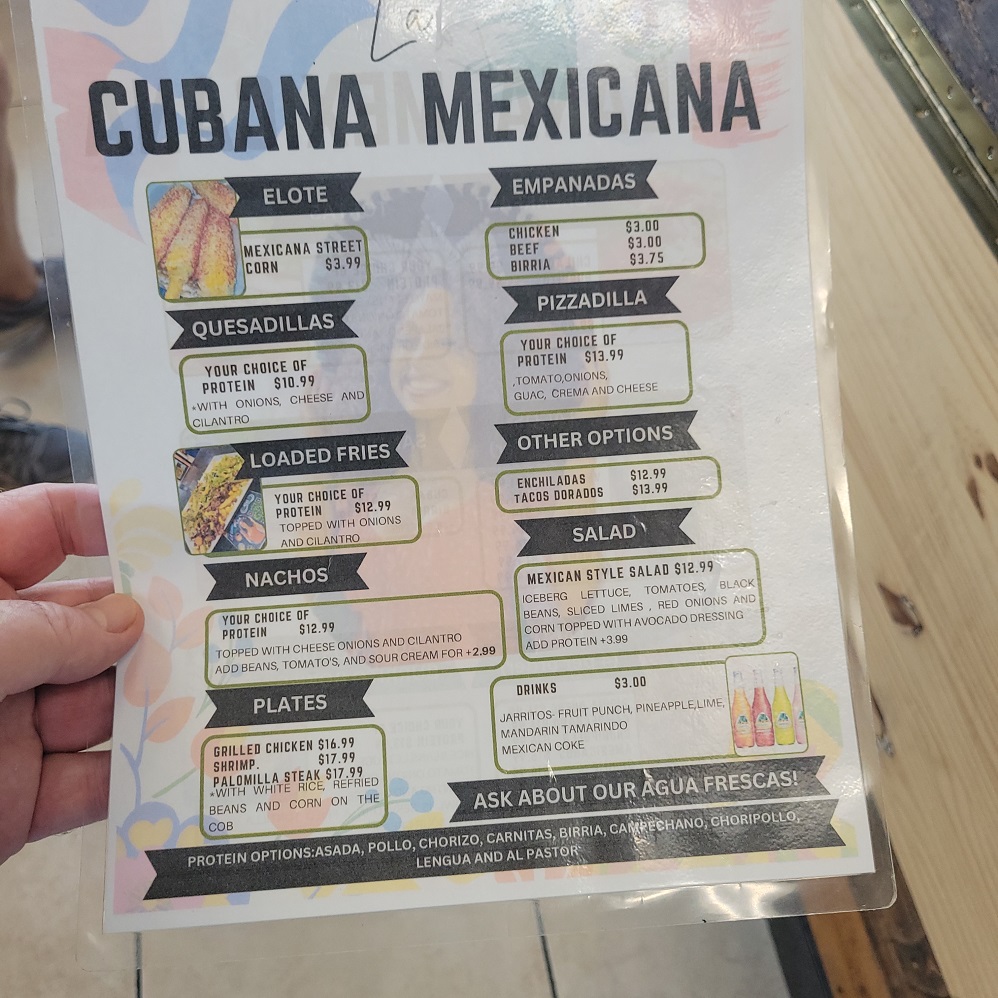 La
CUBANA MEXICANA
ELOTE
MEXICANA STREET
CORN $3.99
QUESADILLAS
YOUR CHOICE OF
PROTEIN $10.99
*WITH ONIONS, CHEESE AND
CILANTRO
LOADED FRIES
YOUR CHOICE OF
PROTEIN $12.99
TOPPED WITH ONIONS
AND CILANTRO
NACHOS
YOUR CHOICE OF
PROTEIN $12.99
TOPPED WITH CHEESE ONIONS AND CILANTRO
ADD BEANS, TOMATO'S, AND SOUR CREAM FOR +2.99
PLATES
GRILLED CHICKEN $16.99
SHRIMP. $17.99
PALOMILLA STEAK $17.99
*WITH WHITE RICE, REFRIED
BEANS AND CORN ON THE
COB
EMPANADAS
CHICKEN $3.00
BEEF $3.00
BIRRIA $3.75
PIZZADILLA
YOUR CHOICE OF
PROTEIN $13.99
,TOMATO,ONIONS,
GUAC, CREMA AND CHEESE
OTHER OPTIONS
ENCHILADAS $12.99
TACOS DORADOS $13.99
SALAD
MEXICAN STYLE SALAD $12.99
ICEBERG LETTUCE, TOMATOES, BLACK
BEANS, SLICED LIMES , RED ONIONS AND
CORN TOPPED WITH AVOCADO DRESSING
ADD PROTEIN +3.99
DRINKS $3.00
JARRITOS- FRUIT PUNCH, PINEAPPLE,LIME,
MANDARIN TAMARINDO
MEXICAN COKE
ASK ABOUT OUR AGUA FRESCAS!
PROTEIN OPTIONS:ASADA, POLLO, CHORIZO, CARNITAS, BIRRIA, CAMPECHANO, CHORIPOLLO,
LENGUA AND AL PASTOR